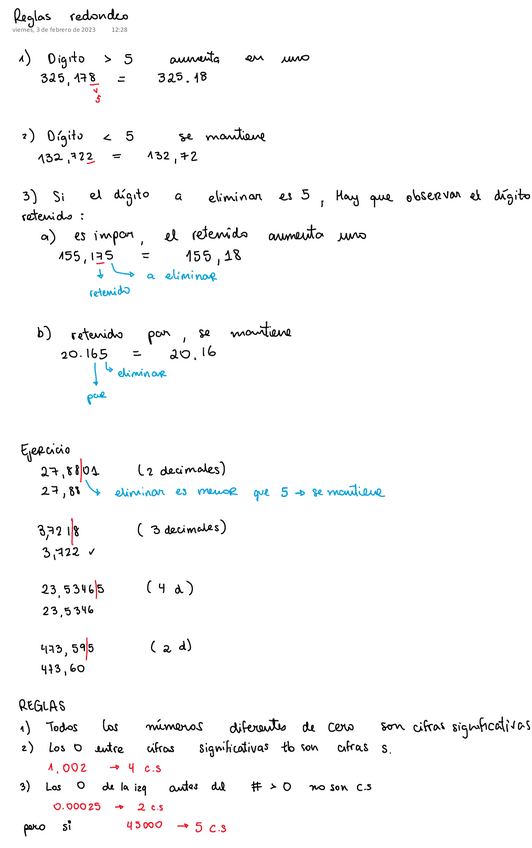 Reglas redondeo
viernes, 3 de febrero de 2023 12:28
1) Digito > 5 aumenta en uno
325,178 = 325.18
> 5
2) Dígito < 5 se mantiene
132,722 = 132,72
3) Si el dígito a eliminar es 5, Hay que observar el dígito
retenido :
a) es impar, el retenido aumenta uno
155,175 = 155,18
a eliminar
retenido
b) retenido par, se mantiene
20.165 = 20.16
eliminar
par
Ejercicio
27,88|01 (2 decimales)
27,88 eliminar es menor que 5 → se mantiene
3,721|8 (3 decimales)
3,722 ✓
23,5346|5 (4 d)
23,5346
473,59|5 (2 d)
473,60
REGLAS
1) Todos los números diferentes de cero son cifras significativas
2) Los 0 entre cifras significativas tb son cifras s.
1,002 → 4 c.s
3) Los 0 de la izq antes del # > 0 no son c.s
0.00025 → 2 c.s
pero si 45000 → 5 c.s